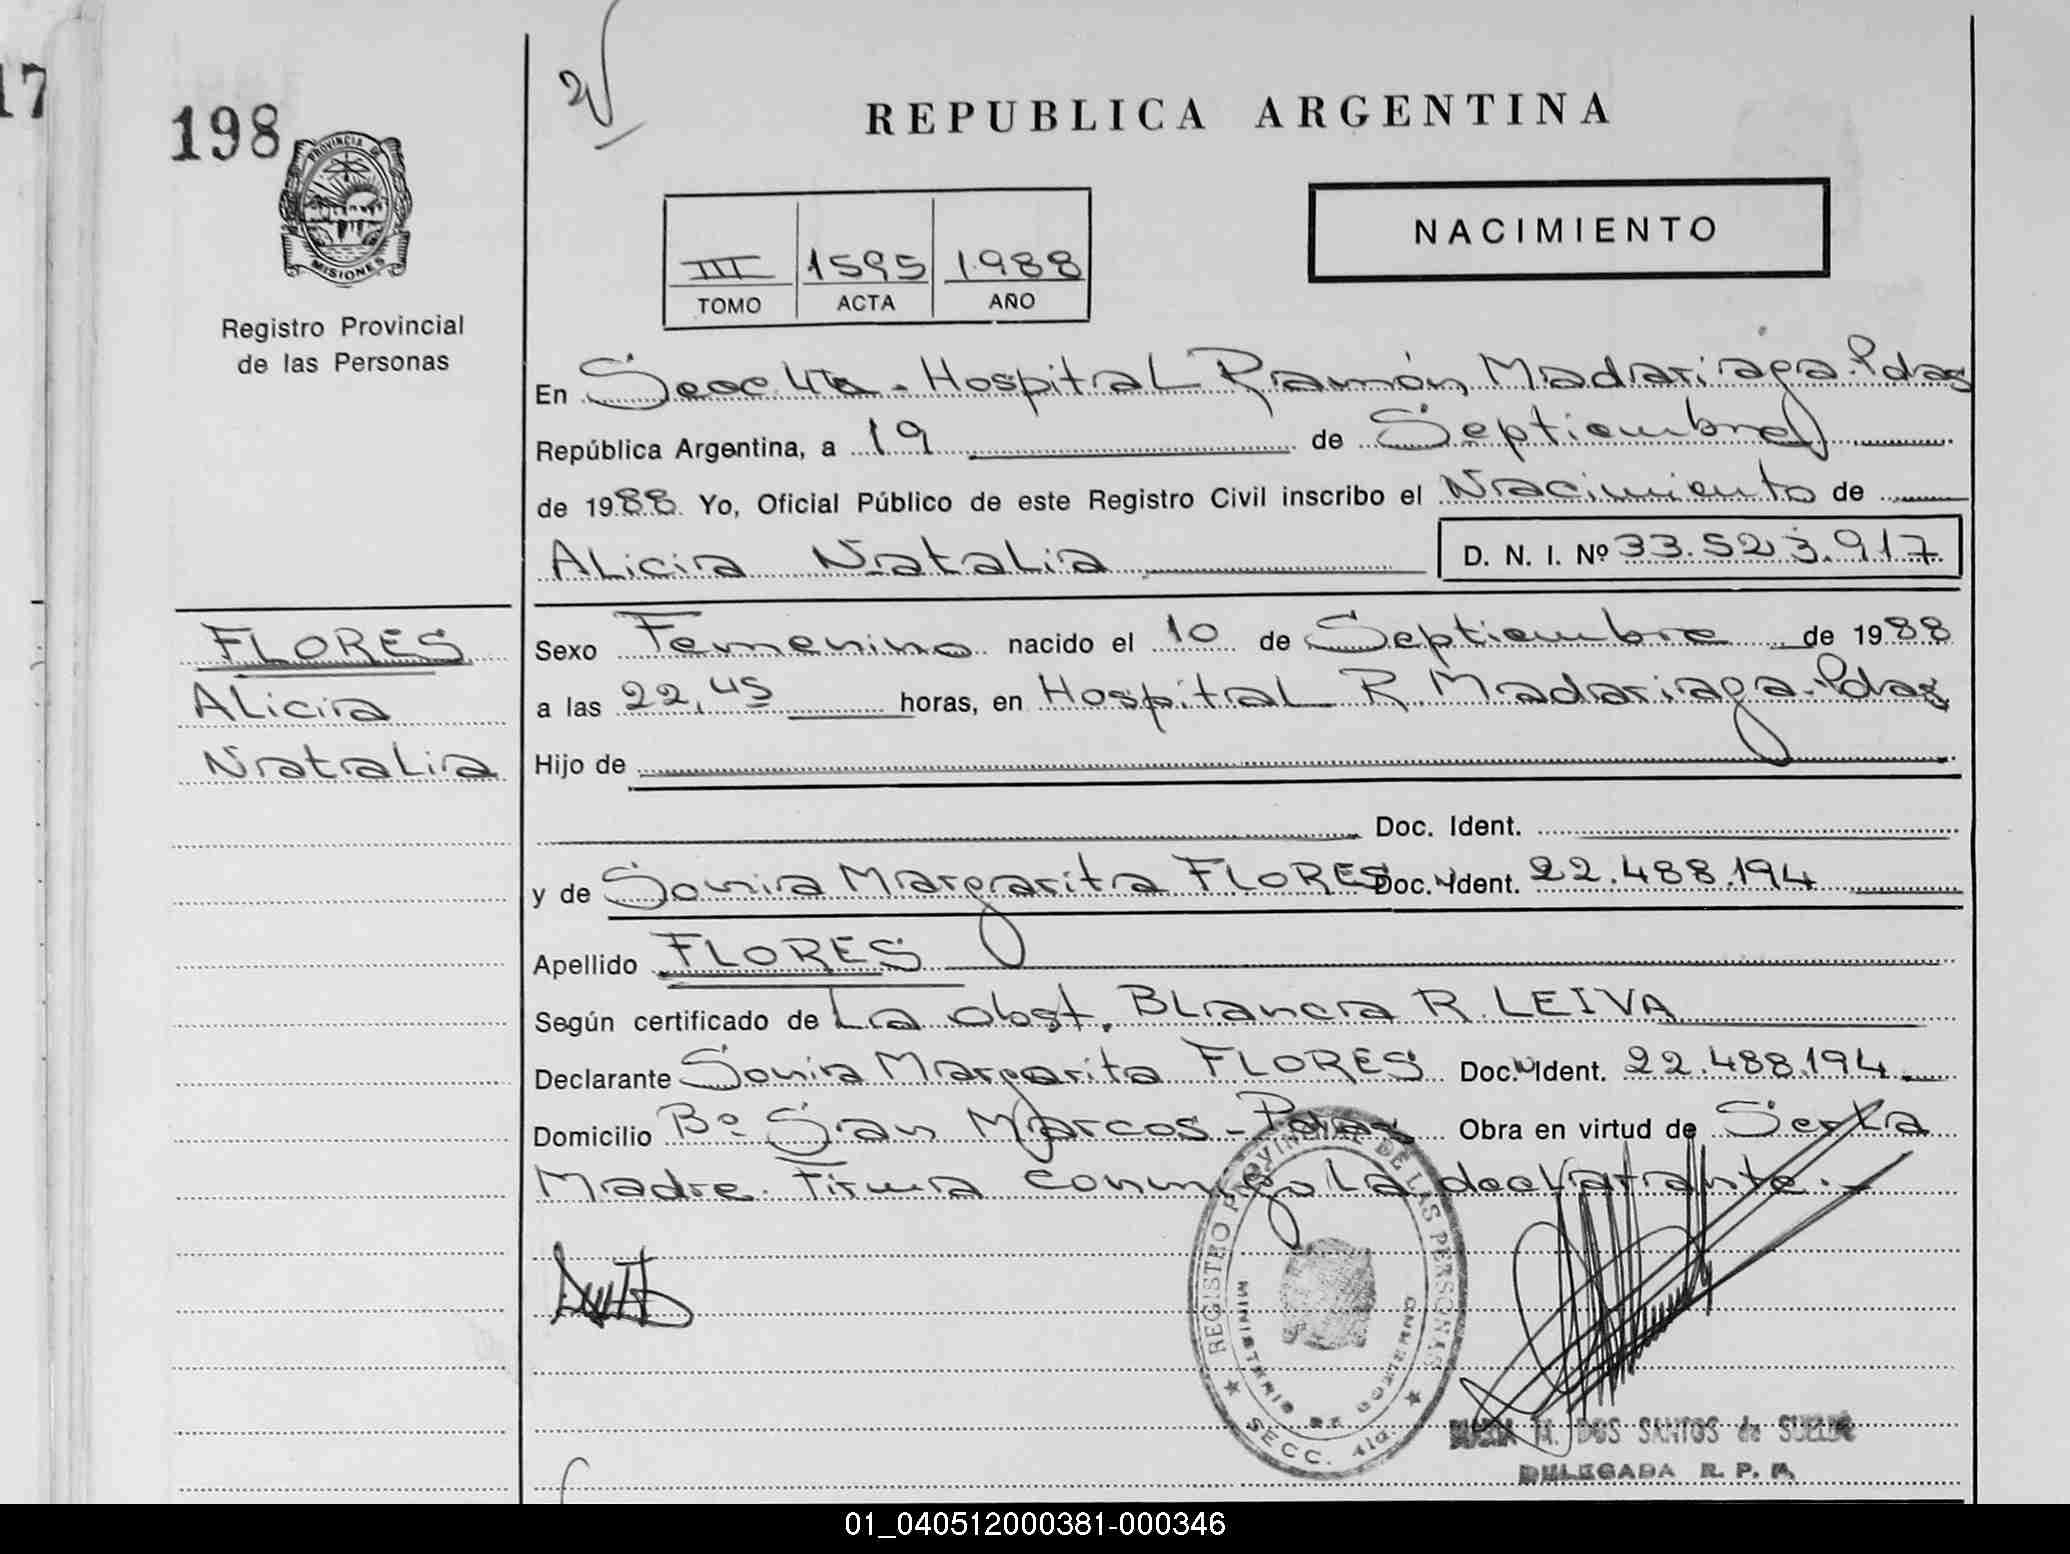 17
198
PROVINCIA DE
MISIONES
Registro Provincial
de las Personas
REPUBLICA ARGENTINA
NACIMIENTO
III 1595 1988
TOMO ACTA AÑO
En Secc. 4ta - Hospital Ramón Madariaga. Pdas
República Argentina, a 19 de Septiembre
de 1988 Yo, Oficial Público de este Registro Civil inscribo el Nacimiento de
Alicia Natalia D. N. I. Nº 33.523.917
FLORES
Alicia
Natalia
Sexo Femenino nacido el 10 de Septiembre de 1988
a las 22,45 horas, en Hospital R. Madariaga. Pdas
Hijo de
Doc. Ident.
y de Sonia Margarita FLORES Doc. Ident. 22.488.194
Apellido FLORES
Según certificado de La obst. Blanca R. LEIVA
Declarante Sonia Margarita FLORES Doc. Ident. 22.488.194
Domicilio Bº San Marcos - Pdas Obra en virtud de Ser la
Madre. Firma conmigo la declarante.-
REGISTRO PROVINCIAL DE LAS PERSONAS
MINISTERIO DE GOBIERNO
SECC. 4ta.
M. DOS SANTOS de
DELEGADA R. P. P.
01_040512000381-000346